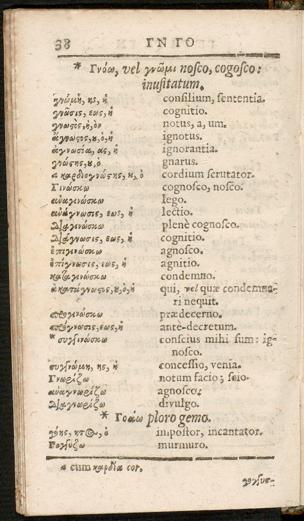 38 ΓΝ ΓΟ
* Γνόω, vel γνῶμι nosco, cogosco:
inusitatum.
γνώμη, ης, ἡ consilium, sententia.
γνῶσις, εως, ἡ cognitio.
γνωτὸς, ἡ, ὸν notus, a, um.
ἄγνωτος, ου, ὁ, ἡ ignotus.
ἀγνωσία, ας, ἡ ignorantia.
γνώστης, ου, ὁ gnarus.
a καρδιογνώστης, ου, ὁ cordium scrutator.
Γινώσκω cognosco, nosco.
ἀναγινώσκω lego.
ἀνάγνωσις, εως, ἡ lectio.
Διαγινώσκω plenè cognosco.
Διάγνωσις, εως, ἡ cognitio.
ἐπιγινώσκω agnosco.
ἐπίγνωσις, εως, ἡ agnitio.
καταγινώσκω condemno.
ἀκατάγνωστος, ου, ὁ, ἡ qui, vel quæ condemna-
ri nequit.
προγινώσκω prædecerno.
πρόγνωσις, εως, ἡ ante-decretum.
* συγγινώσκω conscius mihi sum: ig-
nosco.
συγγνώμη, ης, ἡ concessio, venia.
Γνωρίζω notum facio; scio.
ἀναγνωρίζω agnosco.
Διαγνωρίζω divulgo.
* Γοάω ploro gemo.
γόης, ητος, ὁ impostor, incantator.
Γογγύζω murmuro.
a cum καρδία cor.
γογγυσ-